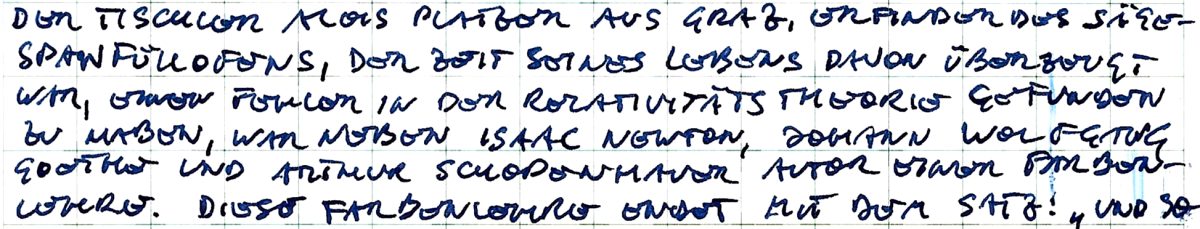 DER TISCHLER ALOIS PLATZER AUS GRAZ, ERFINDER DES SÄGE-
SPANFÜLLOFENS, DER ZEIT SEINES LEBENS DAVON ÜBERZEUGT
WAR, EINEN FEHLER IN DER RELATIVITÄTSTHEORIE GEFUNDEN
ZU HABEN, WAR NEBEN ISAAC NEWTON, JOHANN WOLFGANG
GOETHE UND ARTHUR SCHOPENHAUER AUTOR EINER FARBEN-
LEHRE. DIESE FARBENLEHRE ENDET MIT DEM SATZ: „UND SO